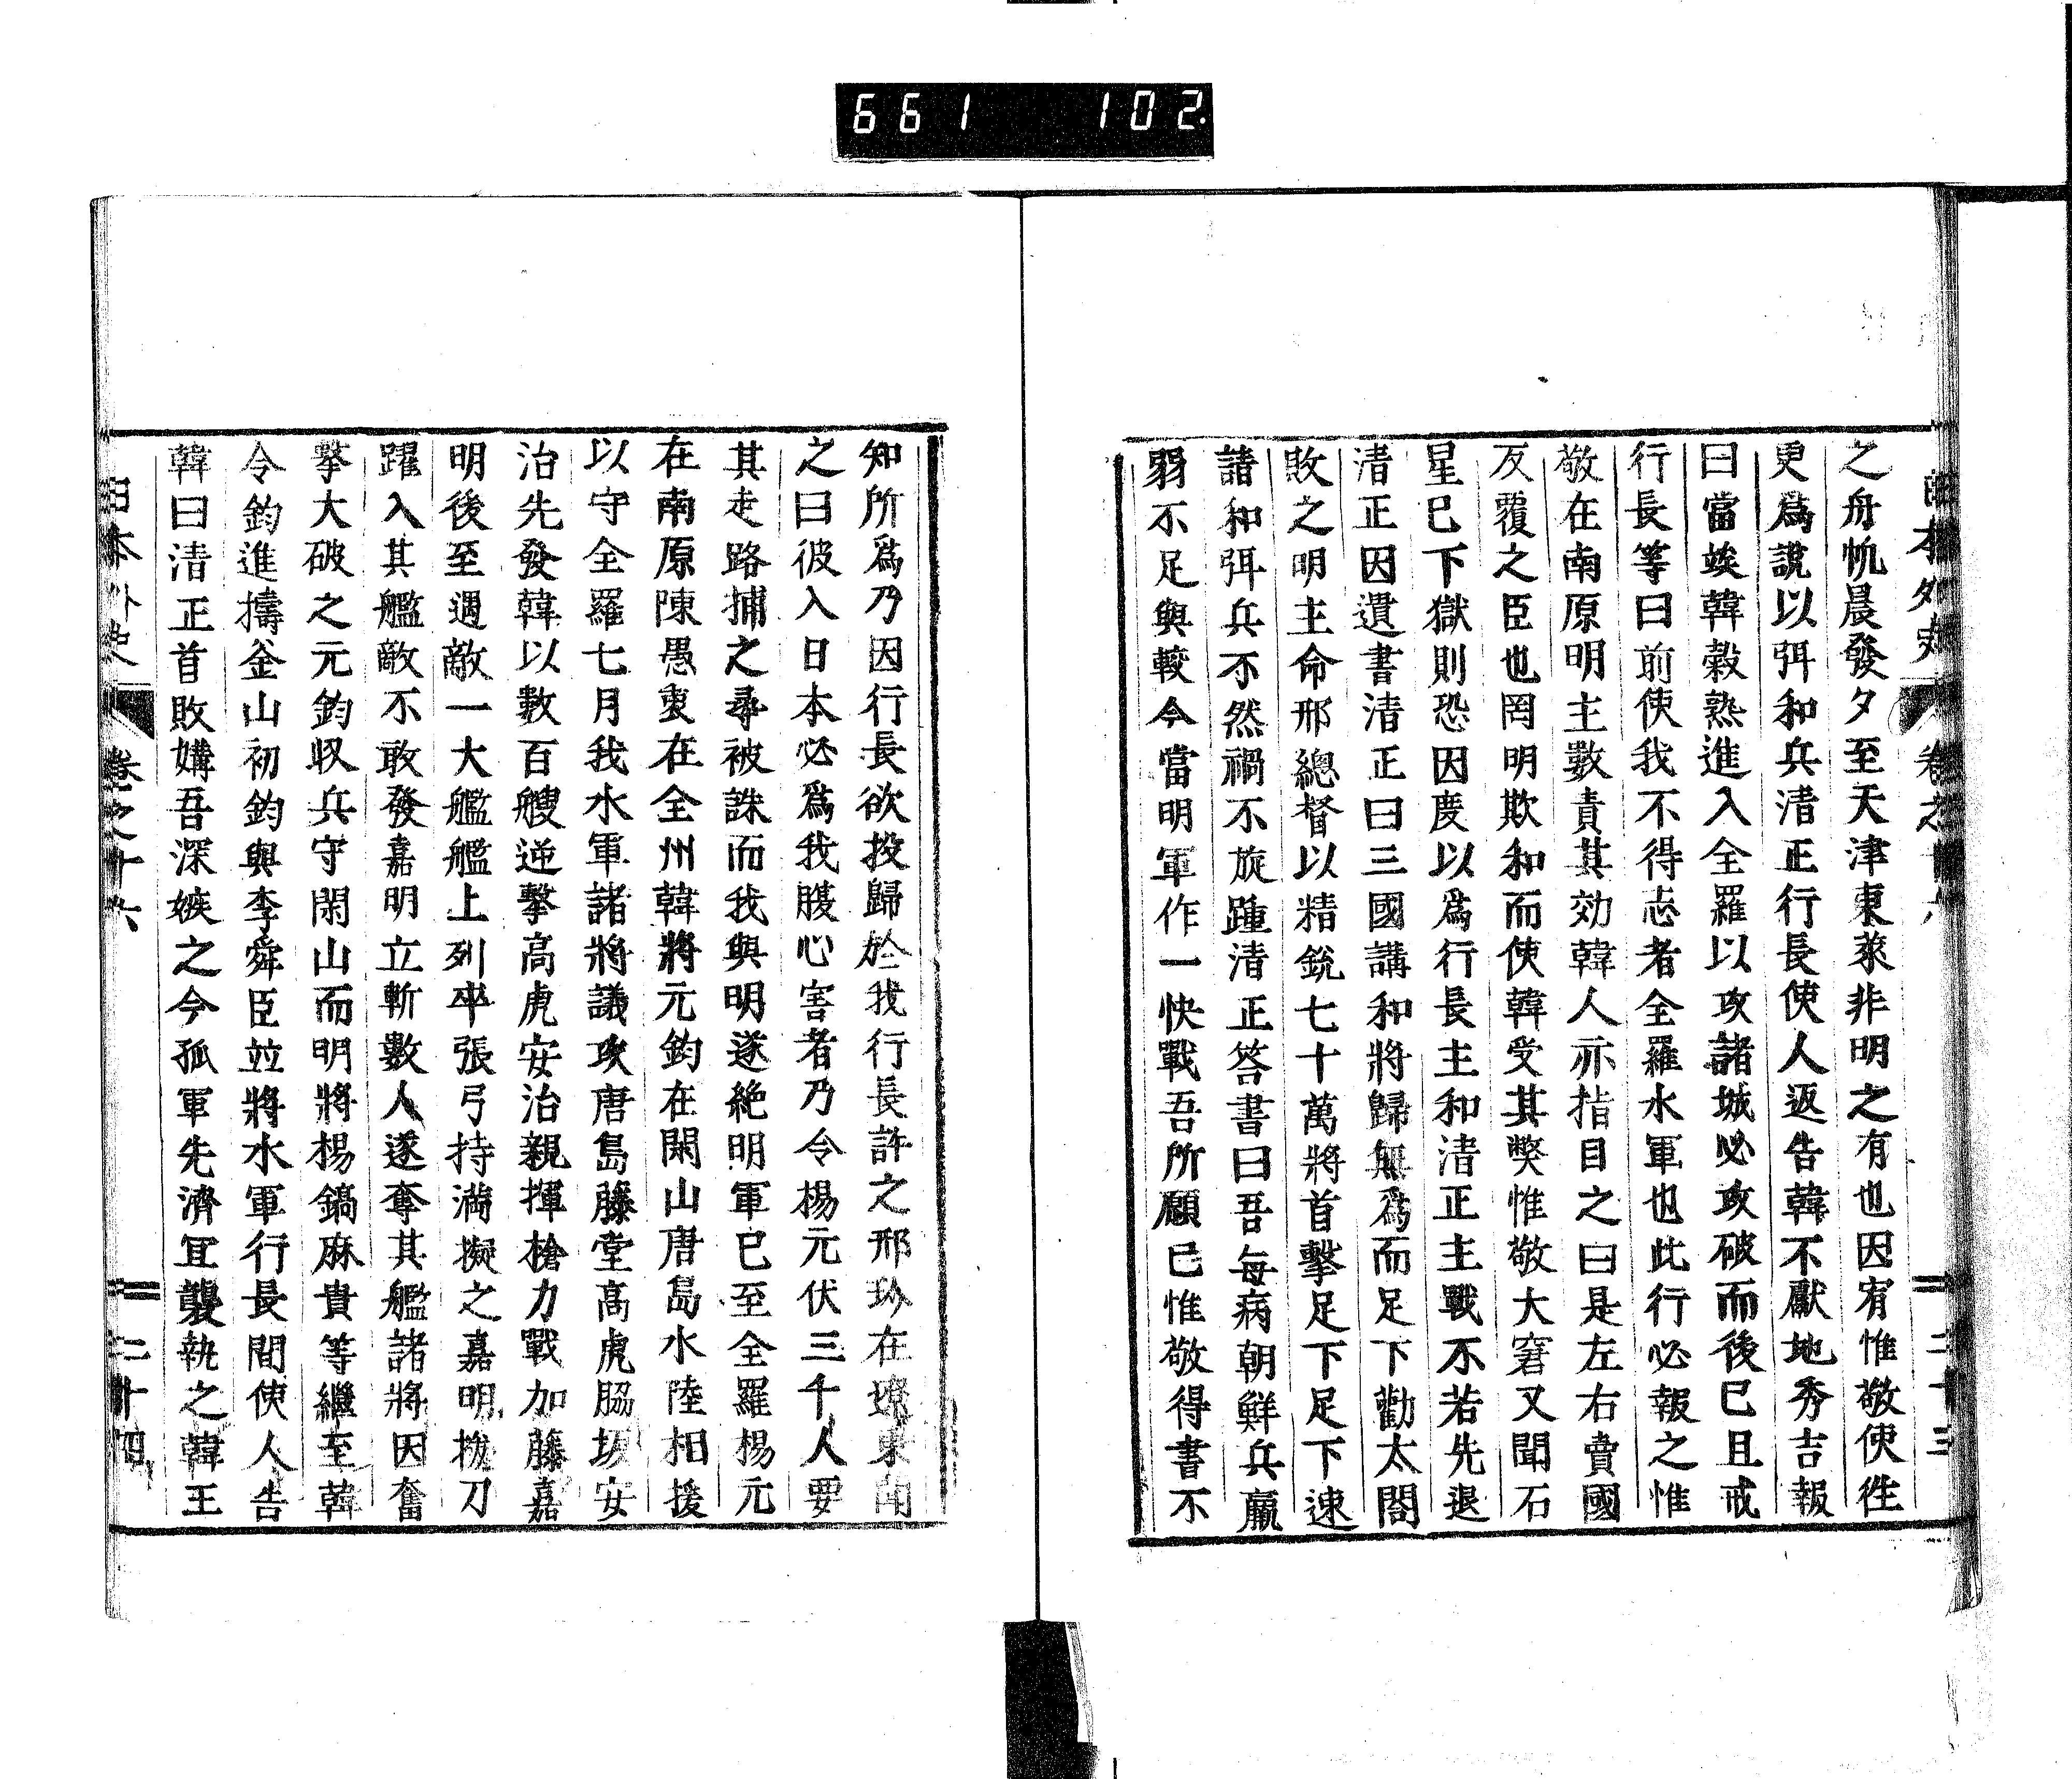 661 102.
日本外史 卷之十六 二十三
之舟帆晨發夕至天津東萊非明之有也因宥惟敬使徃
更爲說以弭和兵淸正行長使人返告韓不獻地秀吉報
曰當竢韓穀熟進入全羅以攻諸城必攻破而後已且戒
行長等曰前使我不得志者全羅水軍也此行必報之惟
敬在南原明主數責其効韓人亦指目之曰是左右賣國
反覆之臣也罔明欺和而使韓受其弊惟敬大窘又聞石
星已下獄則恐因度以爲行長主和淸正主戰不若先退
淸正因遺書淸正曰三國講和將歸無爲而足下勸太閤
敗之明主命邢總督以精銳七十萬將首擊足下足下速
諸和弭兵不然禍不旋踵淸正答書曰吾每病朝鮮兵羸
弱不足與較今當明軍作一快戰吾所願已惟敬得書不
知所爲乃因行長欲投歸於我行長許之邢玠在遼東聞
之曰彼入日本必爲我腹心害者乃令楊元伏三千人要
其走路捕之尋被誅而我與明遂絶明軍已至全羅楊元
在南原陳愚衷在全州韓將元鈞在閑山唐島水陸相援
以守全羅七月我水軍諸將議攻唐島藤堂高虎脇坂安
治先發韓以數百艘逆擊高虎安治親揮槍力戰加藤嘉
明後至遇敵一大艦艦上列卒張弓持滿擬之嘉明拔刀
躍入其艦敵不敢發嘉明立斬數人遂奪其艦諸將因奮
擊大破之元鈞収兵守閑山而明將楊鎬麻貴等繼至韓
令鈞進擣釜山初鈞與李舜臣竝將水軍行長間使人告
韓曰淸正首敗媾吾深嫉之今孤軍先濟宜襲執之韓王
日本外史 卷之十六 二十四